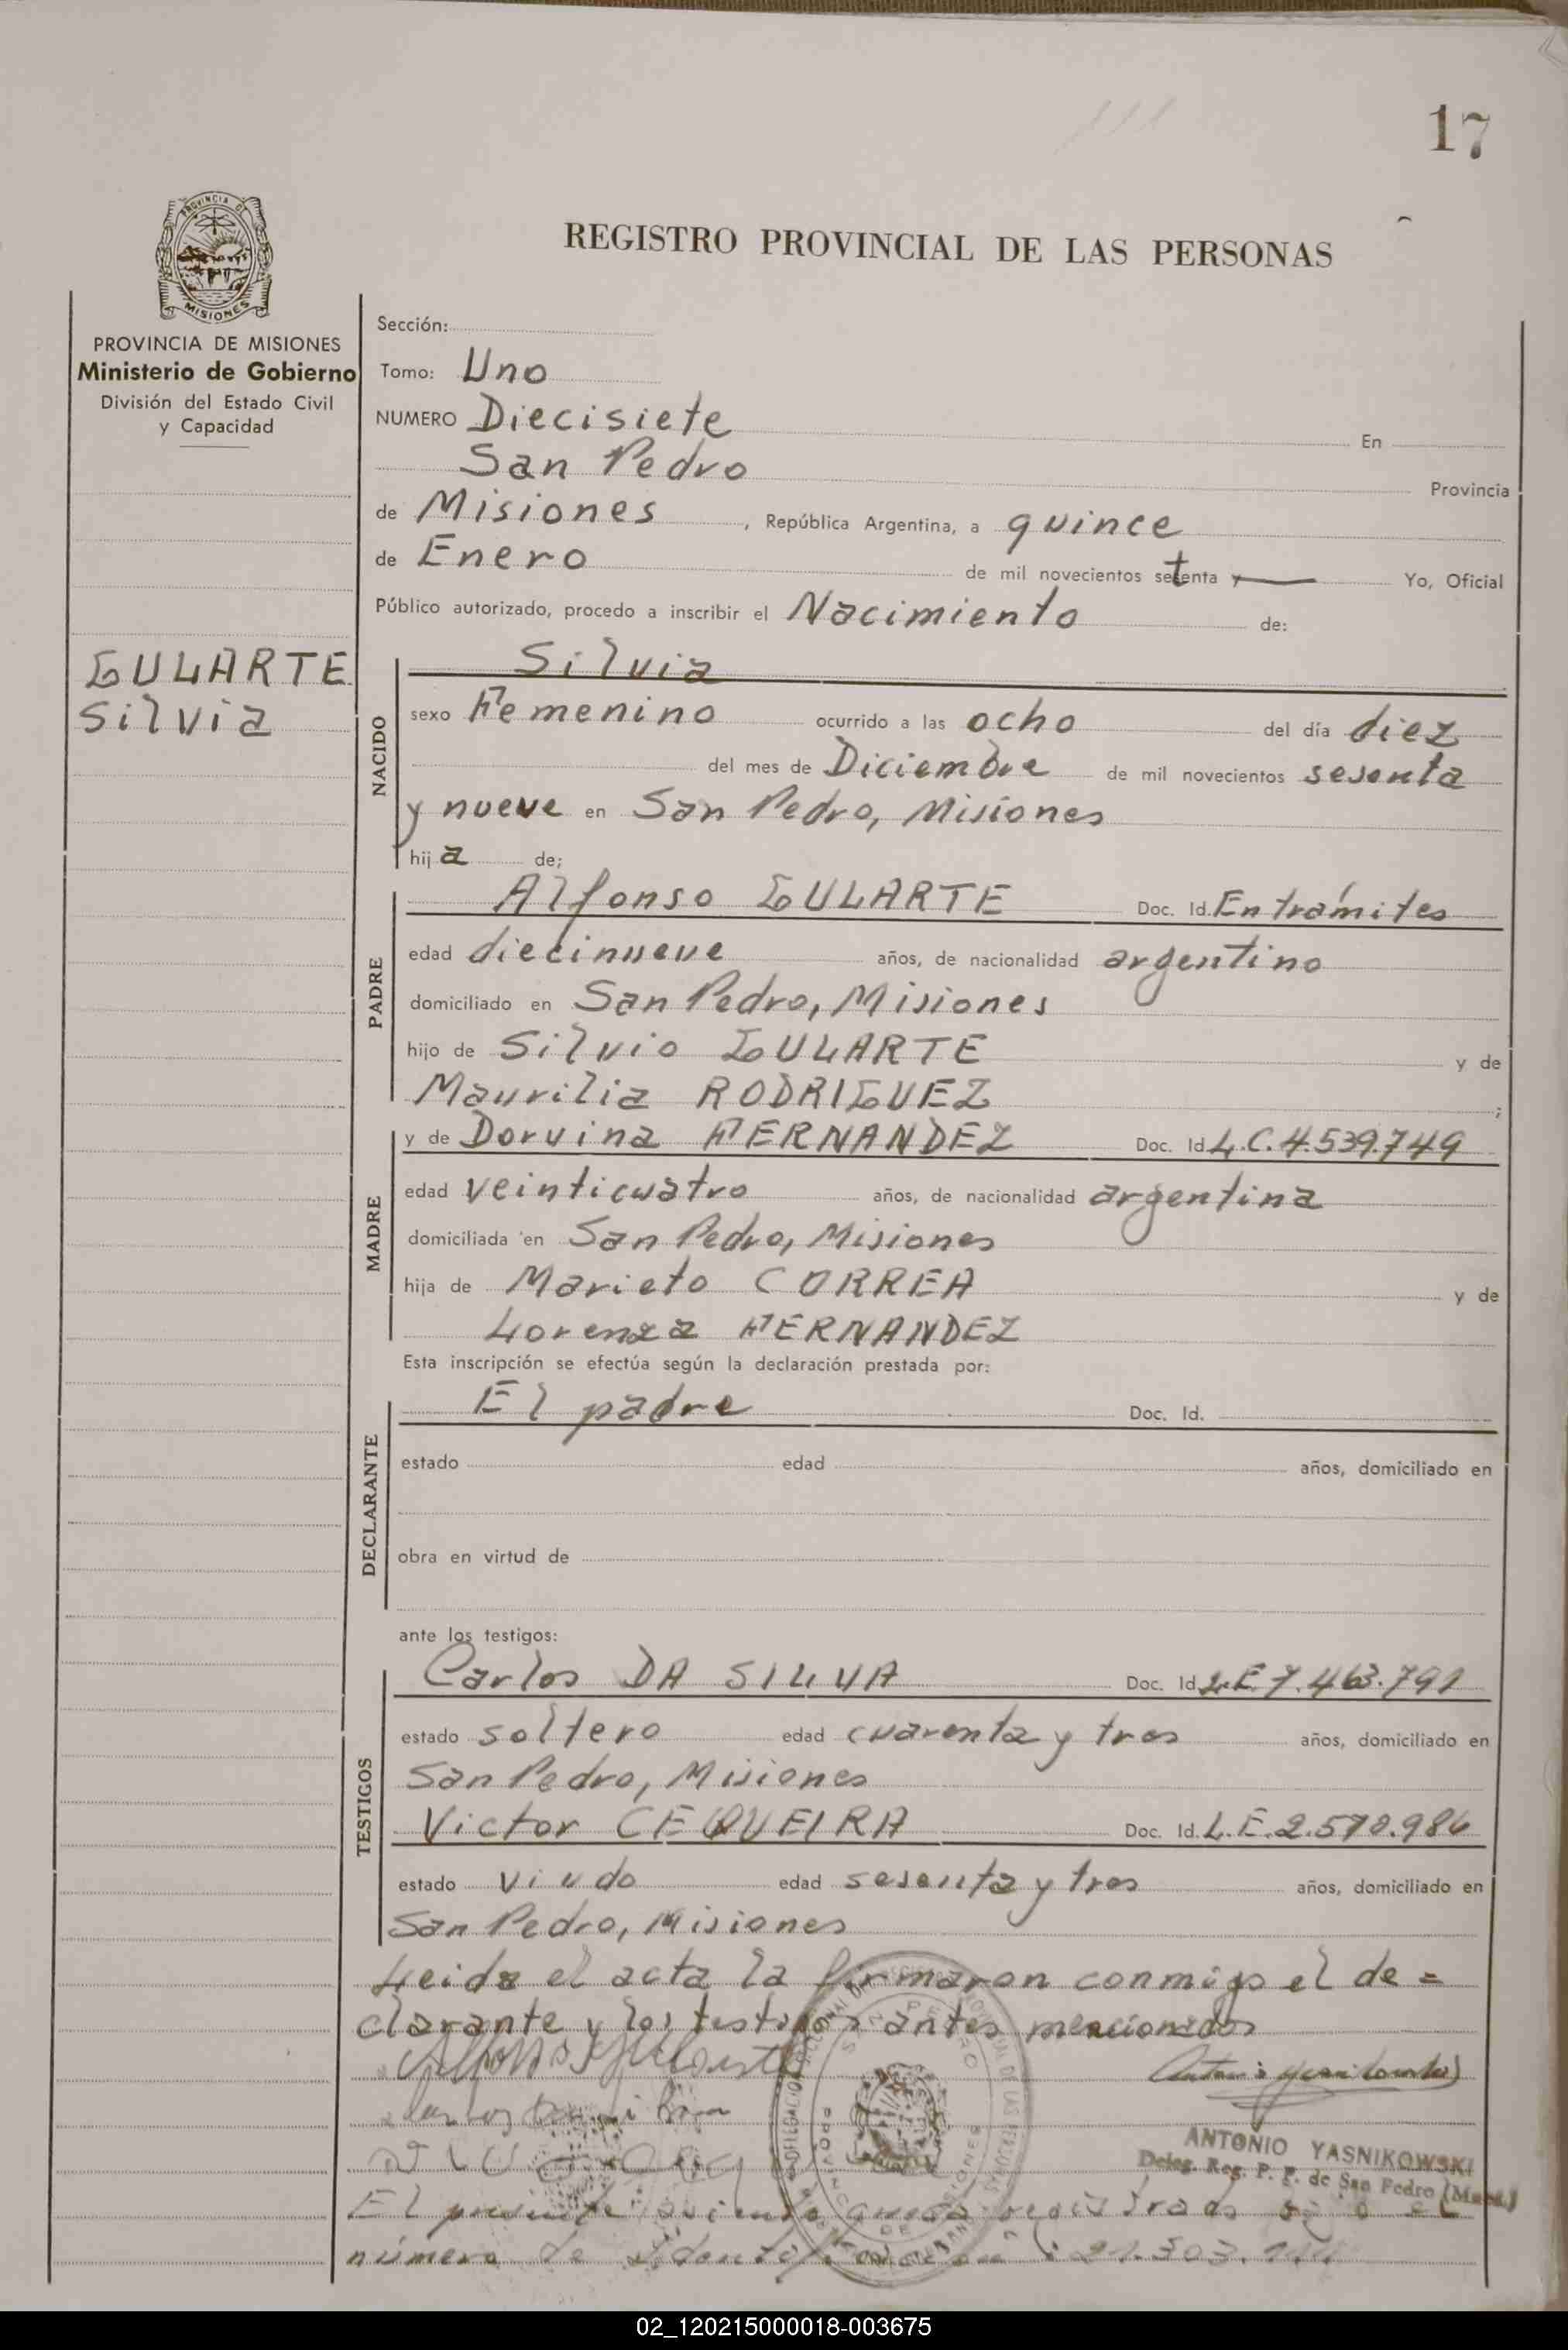 17
REGISTRO PROVINCIAL DE LAS PERSONAS
PROVINCIA DE MISIONES
Ministerio de Gobierno
División del Estado Civil
y Capacidad
GULARTE
Silvia
Sección:
Tomo: Uno
NUMERO Diecisiete En
San Pedro Provincia
de Misiones, República Argentina, a quince
de Enero de mil novecientos setenta y — Yo, Oficial
Público autorizado, procedo a inscribir el Nacimiento de:
NACIDO
Silvia
sexo Femenino ocurrido a las ocho del día diez
del mes de Diciembre de mil novecientos sesenta
y nueve en San Pedro, Misiones
hija de;
PADRE
Alfonso GULARTE Doc. Id. En trámites
edad diecinueve años, de nacionalidad argentino
domiciliado en San Pedro, Misiones
hijo de Silvio GULARTE y de
Maurilia RODRIGUEZ;
MADRE
y de Dorvina FERNANDEZ Doc. Id. L.C. 4.539.749
edad veinticuatro años, de nacionalidad argentina
domiciliada en San Pedro, Misiones
hija de Marieto CORREA y de
Lorenza FERNANDEZ
Esta inscripción se efectúa según la declaración prestada por:
DECLARANTE
El padre Doc. Id.
estado edad años, domiciliado en
obra en virtud de
ante los testigos:
TESTIGOS
Carlos DA SILVA Doc. Id. L.E. 7.463.791
estado soltero edad cuarenta y tres años, domiciliado en
San Pedro, Misiones
Victor CEQUEIRA Doc. Id. L.E. 2.578.986
estado viudo edad sesenta y tres años, domiciliado en
San Pedro, Misiones
Leida el acta la firmaron conmigo el de=
clarante y los testigos antes mencionados
ANTONIO YASNIKOWSKI
Deleg. Reg. P. P. de San Pedro (Mnes.)
El presente queda registrado bajo el
número de : 21.303.
02_120215000018-003675